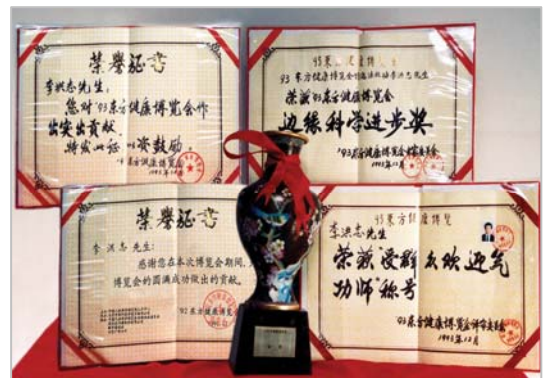 荣誉证书
李洪志先生:
您对'93东方健康博览会作
出突出贡献,
特发此证 以资鼓励。
'93东方健康博览会
1993年12月
'93东方健康博览会
荣获'93东方健康博览会
边缘科学进步奖
'93东方健康博览会评审委员会
1993年12月
荣誉证书
李洪志先生:
感谢您在本次博览会期间,
博览会的圆满成功做出的贡献。
'92东方健康博览
'93东方健康博览
李洪志先生
荣获受群众欢迎气
功师称号
'93东方健康博览会评审委员会
1993年12月